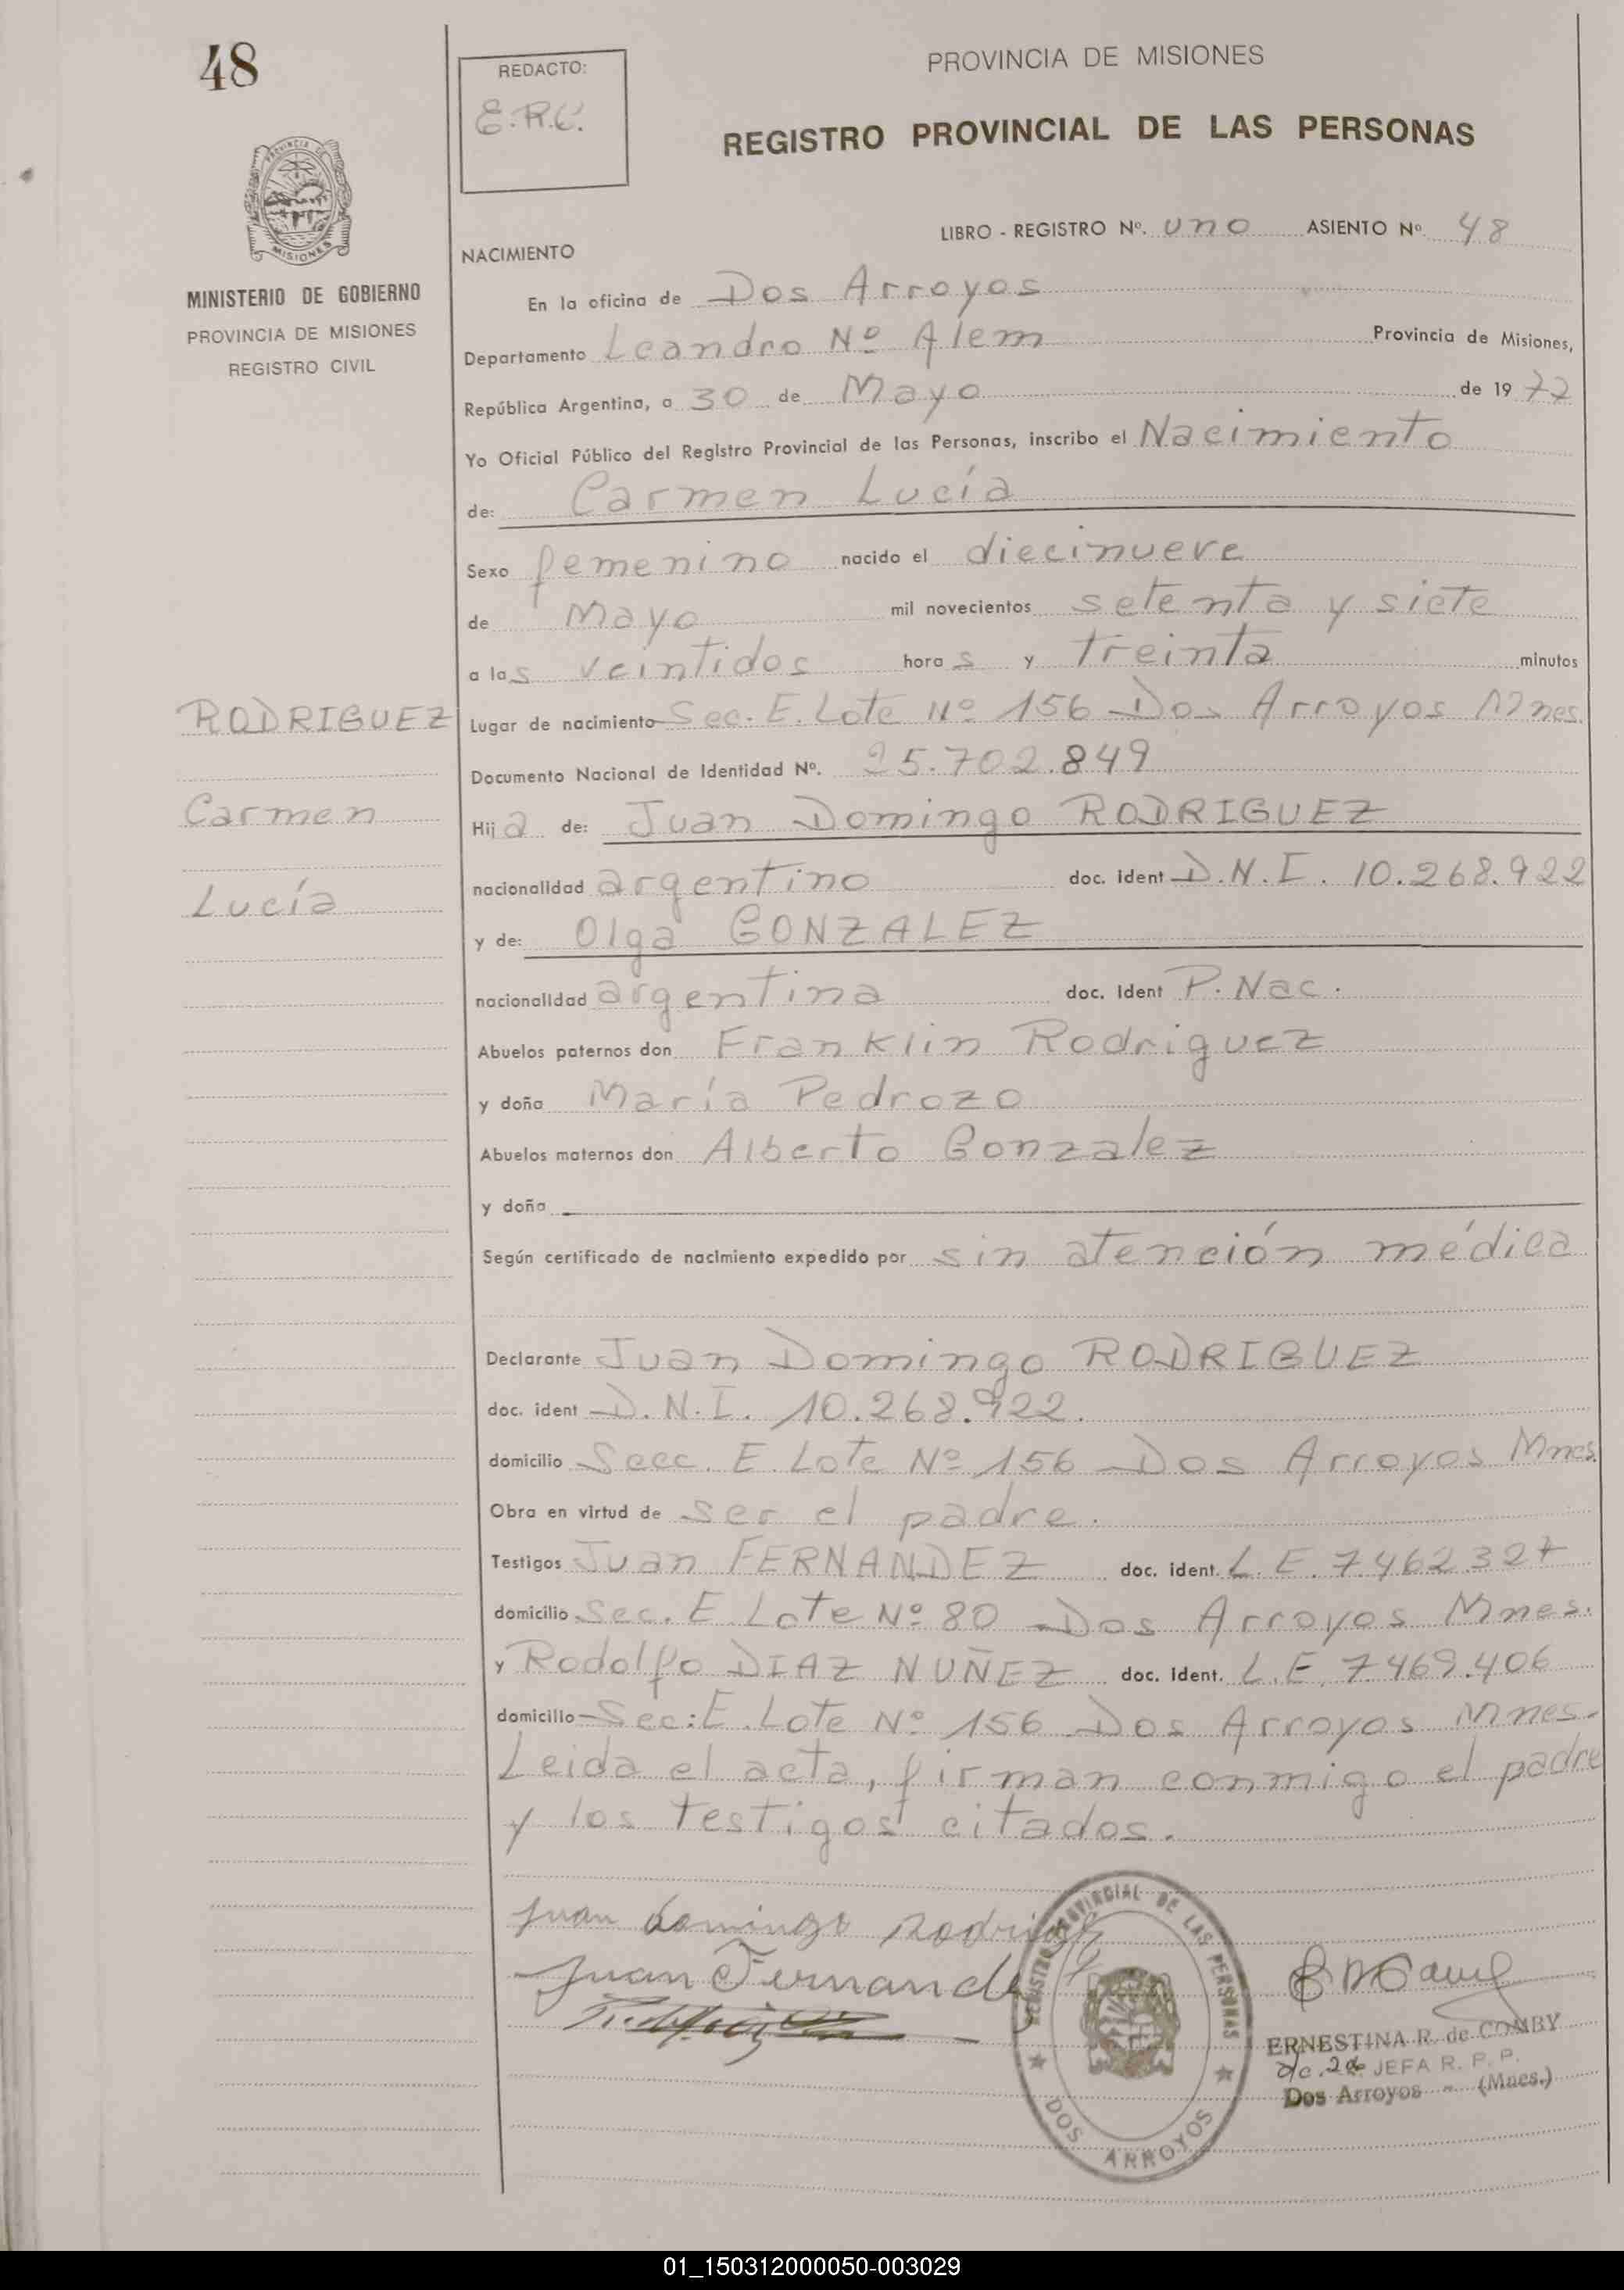 48
REDACTO:
E.R.C.
PROVINCIA DE MISIONES
REGISTRO PROVINCIAL DE LAS PERSONAS
PROVINCIA DE
MISIONES
MINISTERIO DE GOBIERNO
PROVINCIA DE MISIONES
REGISTRO CIVIL
LIBRO - REGISTRO Nº. uno ASIENTO Nº 48
NACIMIENTO
En la oficina de Dos Arroyos
Departamento Leandro Nº Alem Provincia de Misiones,
República Argentina, a 30 de Mayo de 19 77
Yo Oficial Público del Registro Provincial de las Personas, inscribo el Nacimiento
de: Carmen Lucía
Sexo femenino nacido el diecinueve
de Mayo mil novecientos setenta y siete
a las veintidos horas y treinta minutos
RODRIGUEZ
Lugar de nacimiento Sec. E. Lote Nº 156 Dos Arroyos Mnes.
Documento Nacional de Identidad Nº. 25.702.849
Carmen
Hija de: Juan Domingo RODRIGUEZ
Lucía
nacionalidad argentino doc. ident D.N.I. 10.268.922
y de: Olga GONZALEZ
nacionalidad argentina doc. ident P. Nac.
Abuelos paternos don Franklin Rodriguez
y doña María Pedrozo
Abuelos maternos don Alberto Gonzalez
y doña
Según certificado de nacimiento expedido por sin atención médica
Declarante Juan Domingo RODRIGUEZ
doc. ident D.N.I. 10.268.922.
domicilio Secc. E. Lote Nº 156 Dos Arroyos Mnes.
Obra en virtud de ser el padre.
Testigos Juan FERNANDEZ doc. ident. L.E. 7.462.327
domicilio Sec. E Lote Nº 80 Dos Arroyos Mnes.
y Rodolfo DIAZ NUÑEZ doc. ident. L.E. 7.469.406
domicilio Sec: E. Lote Nº 156 Dos Arroyos Mnes.
Leida el acta, firman conmigo el padre
y los testigos citados.
Juan domingo Rodriguez
Juan Fernandez
REGISTRO PROVINCIAL DE LAS PERSONAS
DOS ARROYOS
ERNESTINA R. de COMBY
a/c. JEFA R. P. P.
Dos Arroyos - (Mnes.)
01_150312000050-003029